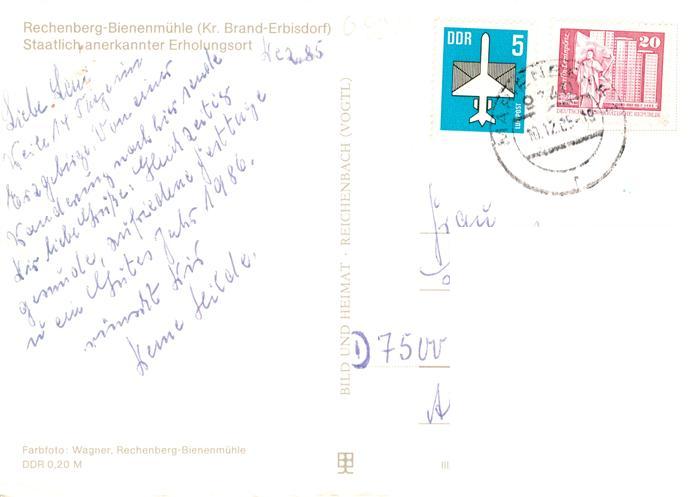 Rechenberg-Bienenmühle (Kr. Brand-Erbisdorf)
Staatlich anerkannter Erholungsort
Dez. 85
Liebe
14 Tage im
Erzgebirge. Von einer
Wanderung nach hier sende
Dir liebe Grüße. Gleichzeitig
gesunde, zufriedene Festtage
u. ein Gutes Jahr 1986.
wünscht Dir
Deine Hilde.
Farbfoto: Wagner, Rechenberg-Bienenmühle
DDR 0,20 M
BILD UND HEIMAT · REICHENBACH (VOGTL)
DDR 5
LUFTPOST
20
DEUTSCHE DEMOKRATISCHE REPUBLIK
10.12.85
Frau
7500
III